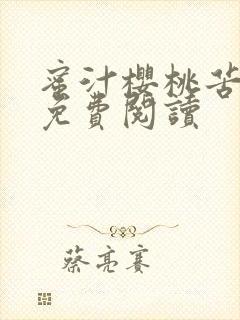 蜜汁櫻桃苦
免費閱讀
蔡亮賽